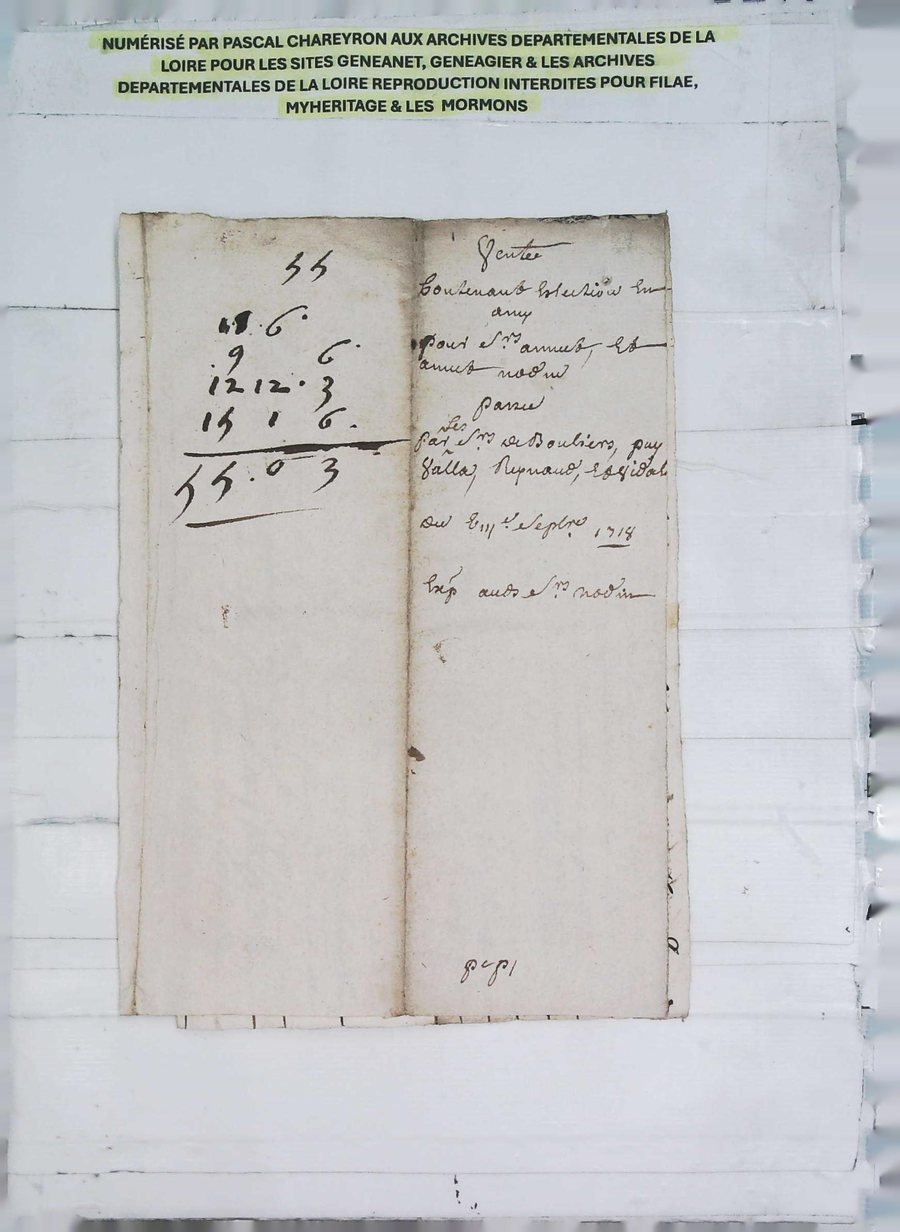 NUMÉRISÉ PAR PASCAL CHAREYRON AUX ARCHIVES DEPARTEMENTALES DE LA
LOIRE POUR LES SITES GENEANET, GENEAGIER & LES ARCHIVES
DEPARTEMENTALES DE LA LOIRE REPRODUCTION INTERDITES POUR FILAE,
MYHERITAGE & LES MORMONS
55
18 . 6 .
9 6 .
12 12 . 3
15 1 6 .
55 . 0 3
Vente
Contenant Eslection En
amy
Pour Srs annut, Et
annut
passée
Par les Srs de Boubiers, puy
Valla, Reynaud, Et Vidal
du Septre 1718
Exp auds Srs